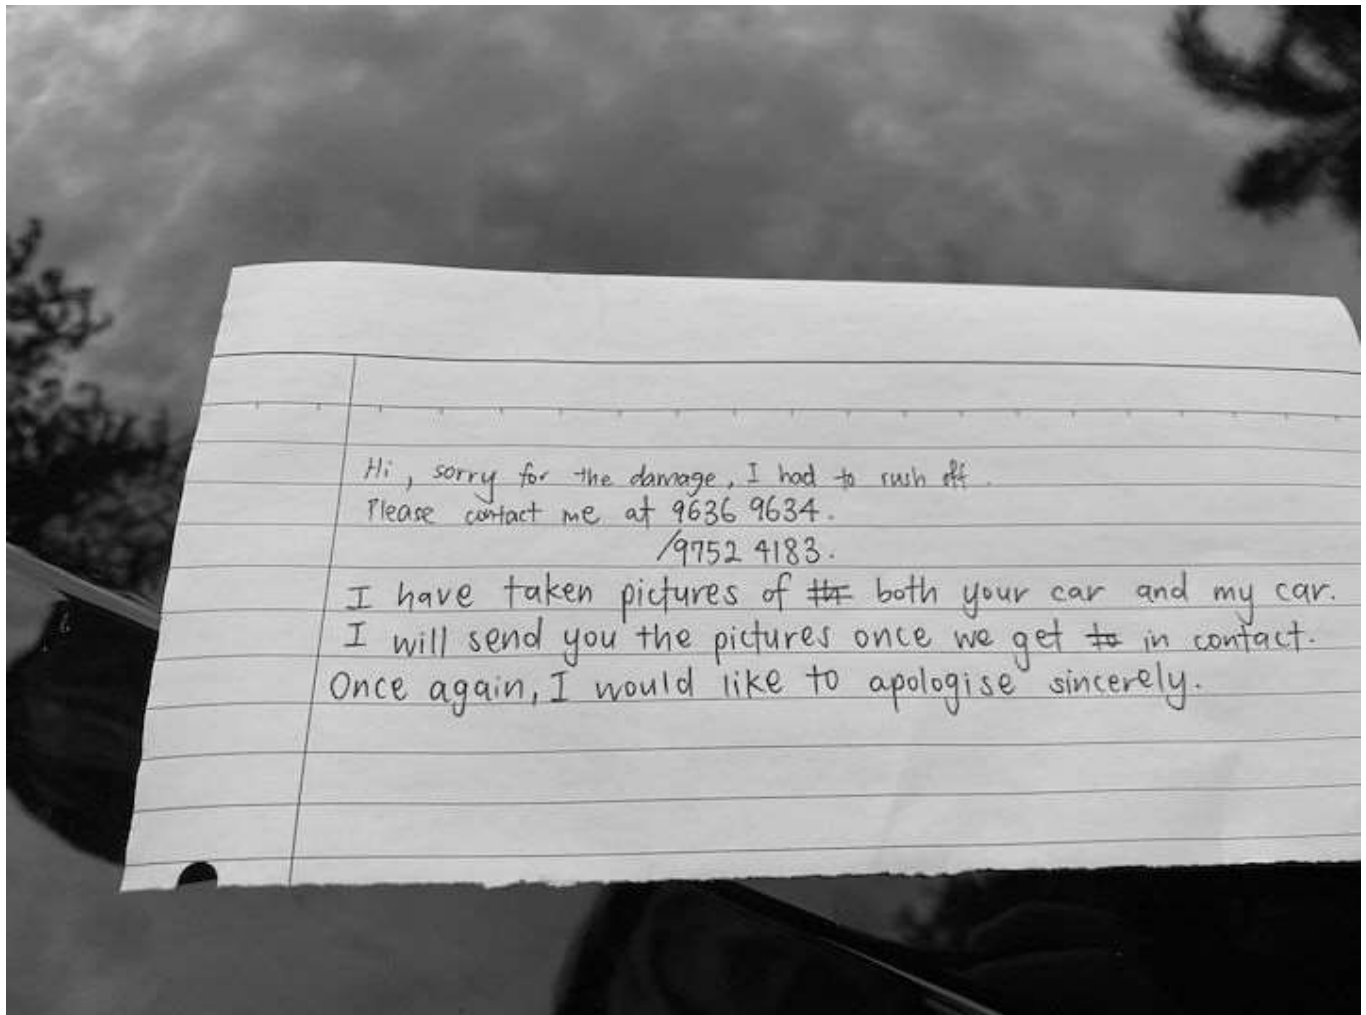 Hi, sorry for the damage, I had to rush off.
Please contact me at 9636 9634.
/9752 4183.
I have taken pictures of both your car and my car.
I will send you the pictures once we get to in contact.
Once again, I would like to apologise sincerely.